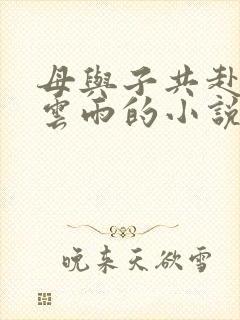 母與子共赴
雲雨的小說
晚来天欲雪